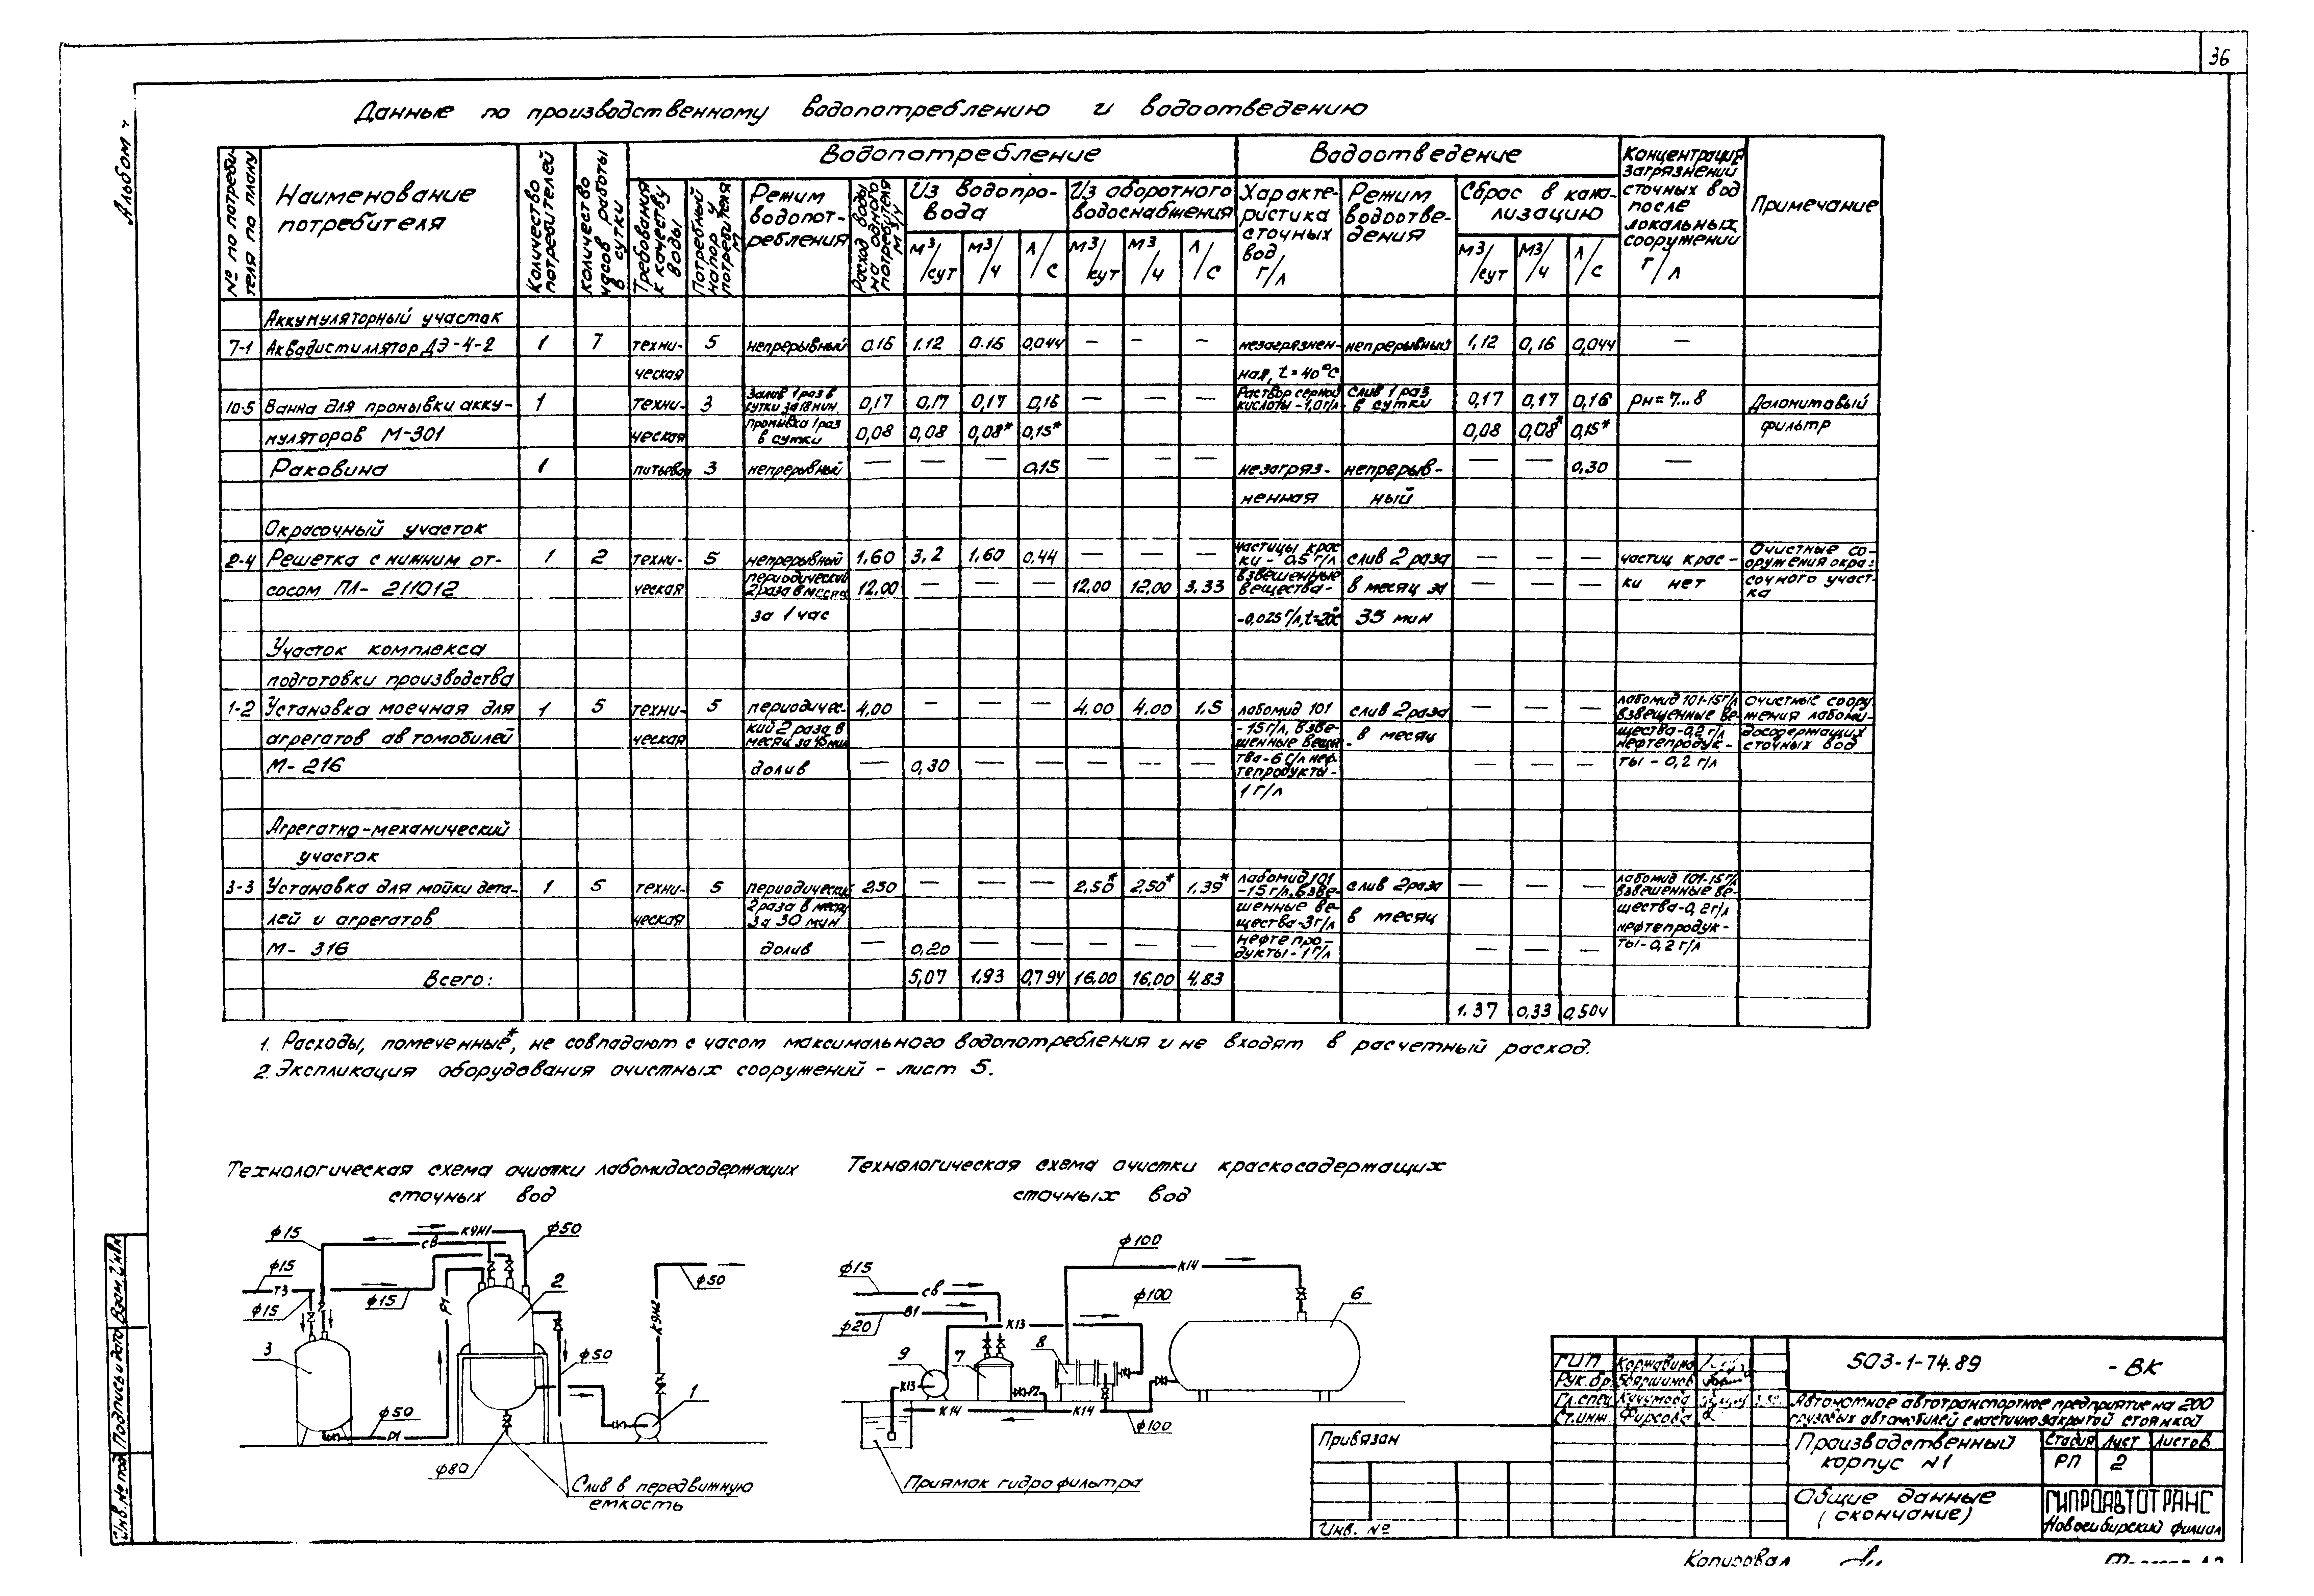 36
Альбом
Данные по производственному водопотреблению и водоотведению
№ по потреби-
теля по плану
Наименование
потребителя
Количество
потребителей
Количество
часов работы
в сутки
Водопотребление
Требования
к качеству
воды
Потребный
напор у
потребителя
м
Режим
водопот-
ребления
Расход воды
на одного
потребителя
м3/ч
Из водопро-
вода
Из оборотного
водоснабжения
м3/сут
м3/ч
л/с
м3/сут
м3/ч
л/с
Водоотведение
Характе-
ристика
сточных
вод
г/л
Режим
водоотве-
дения
Сброс в кана-
лизацию
м3/сут
м3/ч
л/с
Концентрация
загрязнений
сточных вод
после
локальных
сооружений
г/л
Примечание
Аккумуляторный участок
7-1 Аквадистиллятор ДЭ-4-2 1 7 техни- 5 непрерывный 0.16 1.12 0.16 0,044 — — — незагрязнен- непрерывный 1,12 0,16 0,044 —
ческая ная, t=40°С
10-5 Ванна для промывки акку- 1 техни- 3 Залив 1 раз в сутки за 18 мин. 0,17 0,17 0,17 0,16 — — — Раствор серной кислоты-1,0г/л слив 1 раз в сутки 0,17 0,17 0,16 рн=7...8 Доломитовый
муляторов М-301 ческая промывка 1 раз в сутки 0,08 0,08 0,08* 0,15* 0,08 0,08* 0,15* фильтр
Раковина 1 питьевая 3 непрерывный — — — 0,15 — — — незагряз- непрерыв- — — 0,30 —
ненная ный
Окрасочный участок
2-4 Решетка с нижним от- 1 2 техни- 5 непрерывный 1.60 3,2 1.60 0,44 — — — частицы крас ки - 0,5 г/л слив 2 раза — — — частиц крас- Очистные со- оружения окра-
сосом ПЛ-211012 ческая периодический 2 раза в месяц 12,00 — — — 12,00 12,00 3,33 взвешенные вещества- в месяц за — — — ки нет сочного участ- ка
за 1 час -0,025 г/л, t=20°С 35 мин
Участок комплекса
подготовки производства
1-2 Установка моечная для 1 5 техни- 5 периодичес- 4,00 — — — 4.00 4.00 1.5 лабомид 101 слив 2 раза — — — лабомид 101-15г/л взвешенные ве- очистные соору жения лабоми-
агрегатов автомобилей ческая кий 2 раза в месяц за 45 мин -15г/л, взве- шенные вещес- в месяц щества-0,2 г/л нефтепродук- досодержащих сточных вод
М-216 долив — 0,30 — — — — — тва-6 г/л неф тепродукты- — — — ты - 0,2 г/л
1 г/л
Агрегатно-механический
участок
3-3 Установка для мойки дета- 1 5 техни- 5 периодический 2,50 — — — 2,50* 2,50* 1,39* лабомид 101 -15 г/л, взве- слив 2 раза — — — лабомид 101-15г/л взвешенные ве-
лей и агрегатов ческая 2 раза в месяц за 30 мин шенные ве- щества-3г/л в месяц щества-0,2 г/л нефтепродук-
М-316 долив — 0,20 — — — — — нефтепро- дукты-1г/л — — — ты-0,2 г/л
Всего: 5,07 1.93 0,794 16,00 16,00 4.83
1.37 0,33 0,504
1. Расходы, помеченные*, не совпадают с часом максимального водопотребления и не входят в расчетный расход.
2. Экспликация оборудования очистных сооружений - лист 5.
Технологическая схема очистки лабомидосодержащих
сточных вод
ф15
К9Н1
св
ф50
ф15
Т3
ф15
ф15
Р1
2
К9Н2
ф50
3
ф50
1
ф50
Р1
ф80
Слив в передвижную
емкость
Технологическая схема очистки краскосодержащих
сточных вод
ф100
К14
ф15
св
ф100
6
В1
ф20
К13
9
7
8
К13
Р2
К14
К14
ф100
Приямок гидрофильтра
Взам. инв.
Подпись и дата
Инв. № под.
Привязан
Инв. №
ГИП Коржавина
Рук.бр. Бояршинов
Гл.спец Кучумова
Ст.инж. Фирсова
503-1-74.89 -ВК
Автономное автотранспортное предприятие на 200
грузовых автомобилей с частично закрытой стоянкой
Производственный
корпус №1
Стадия Лист Листов
РП 2
Общие данные
(окончание)
ГИПРОАВТОТРАНС
Новосибирский филиал
Копировал